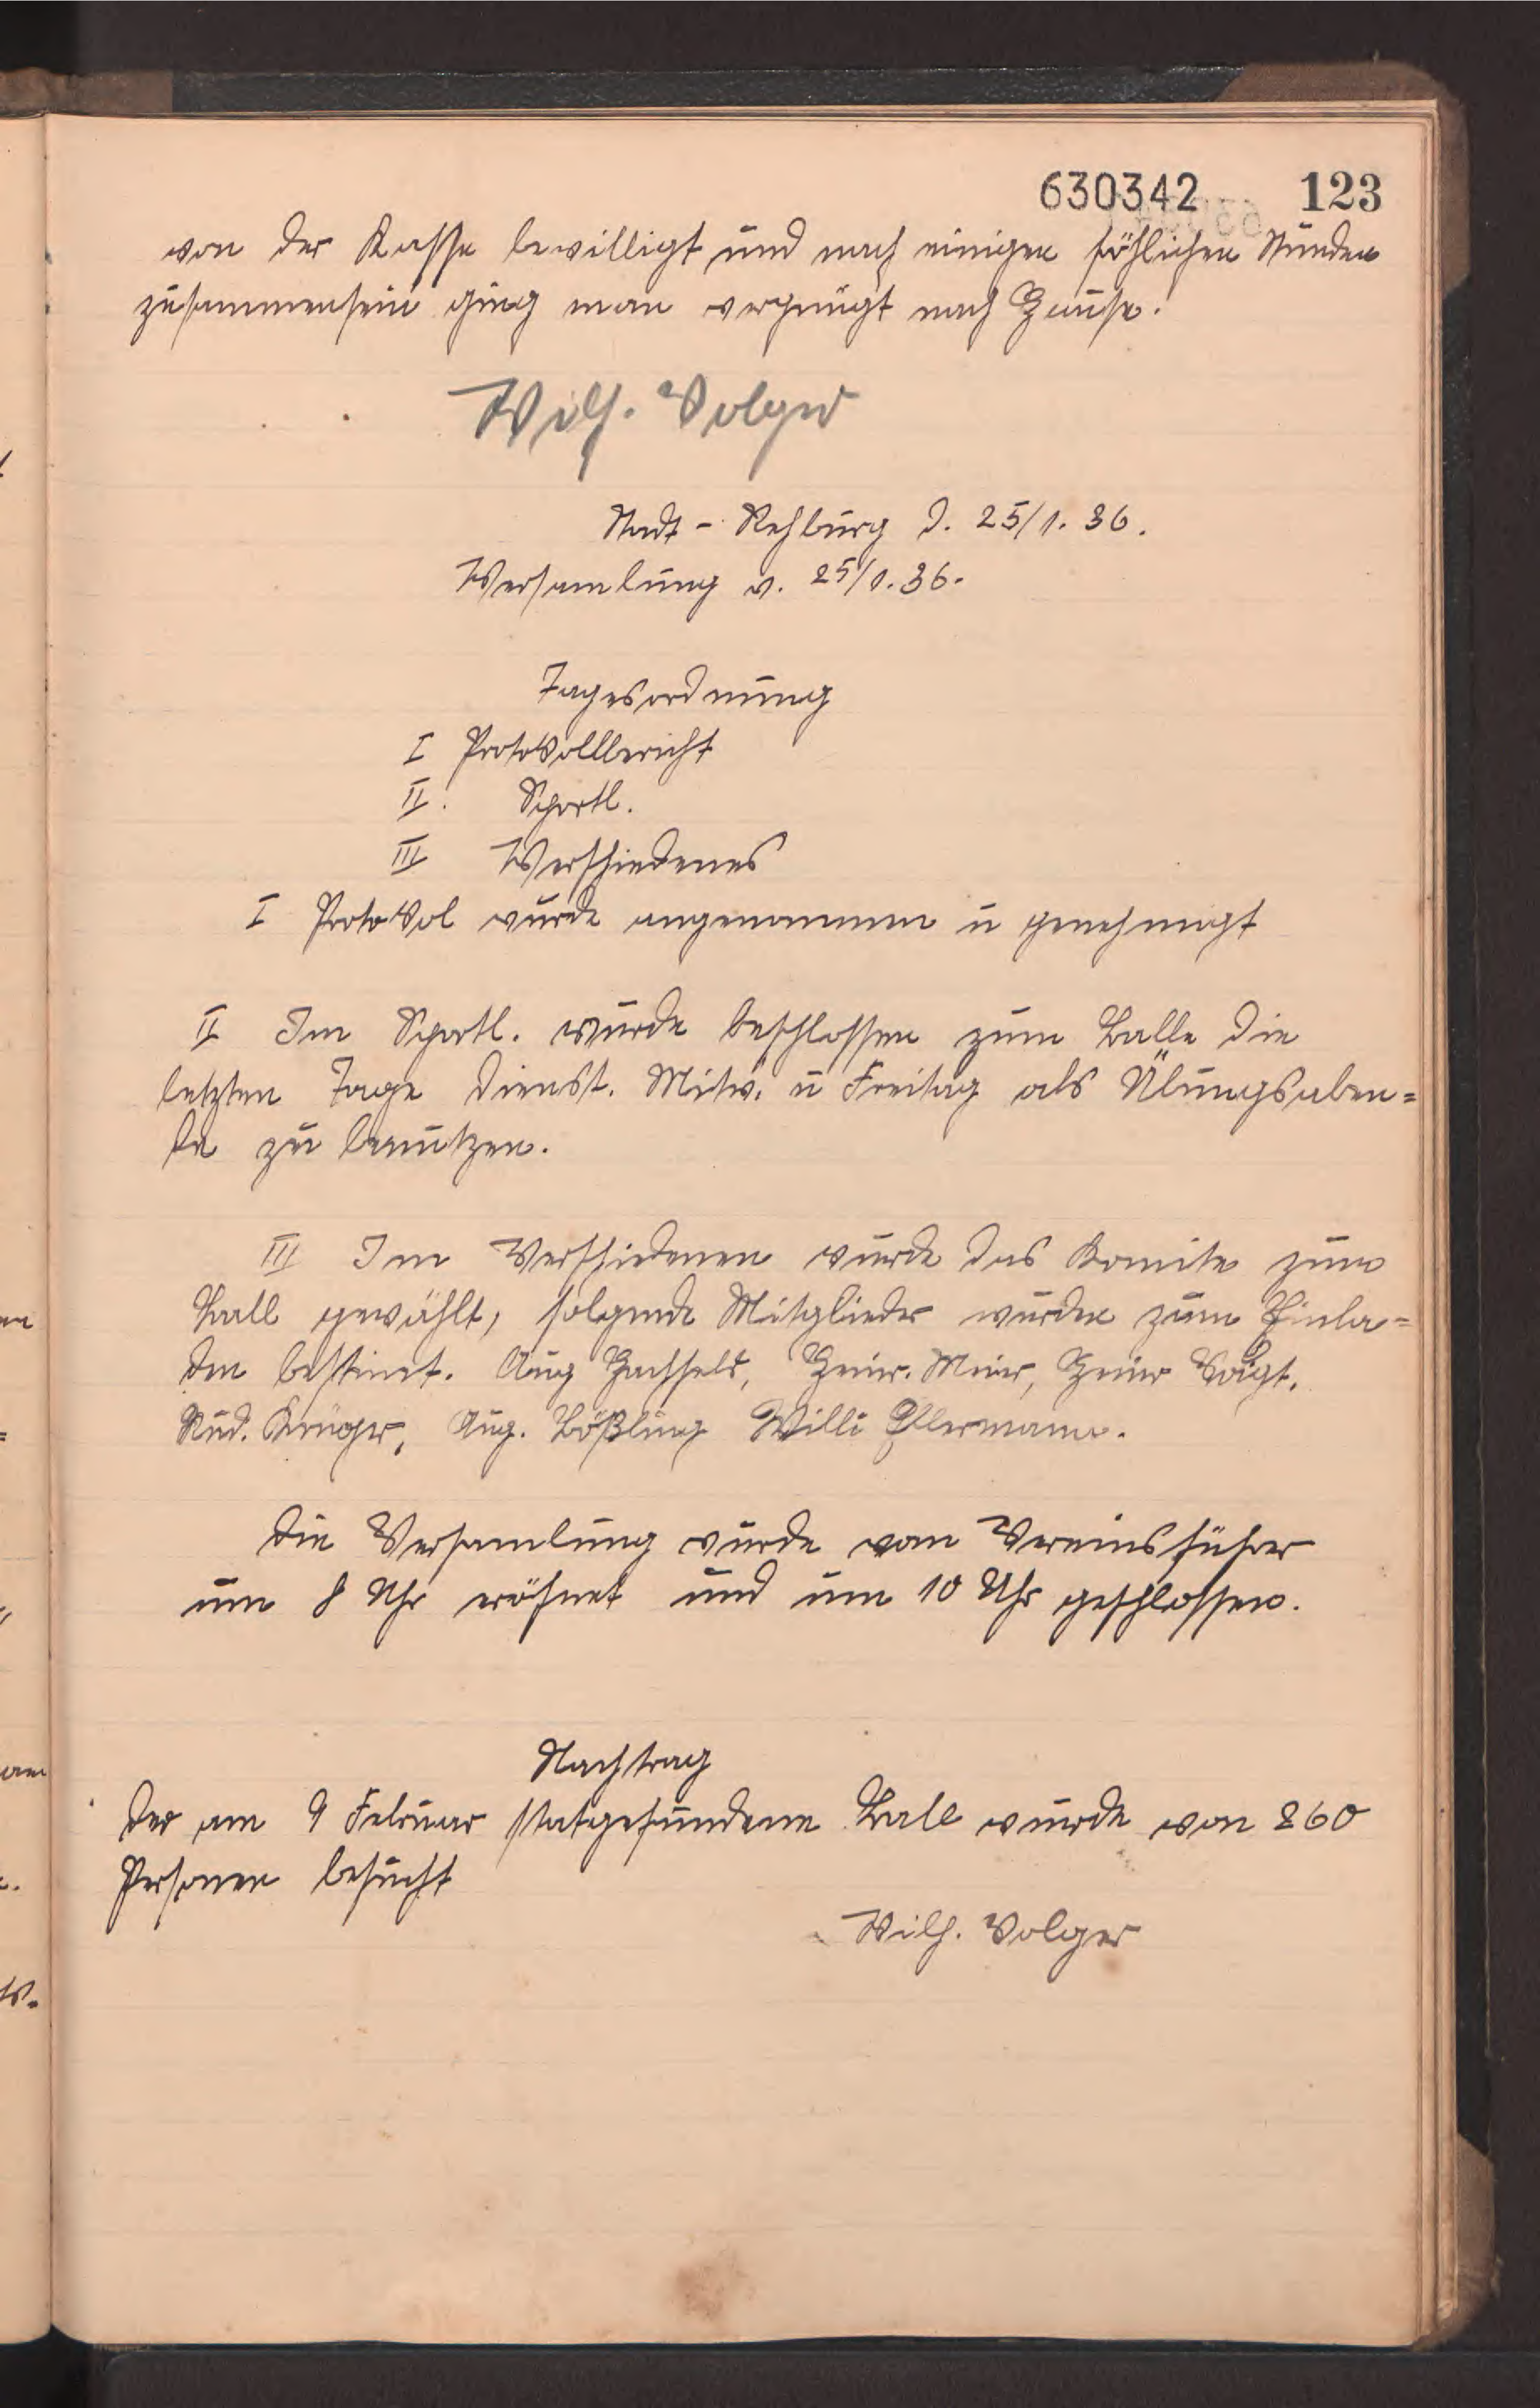 630342 123
von der Kasse bewilligt und nach einigen föhlichen Stunden
zusammensein ging man vergnügt nach Hause.
Wilh. Volger
Stadt - Rehburg d. 25/1. 36.
Versamlung v. 25/1. 36.
Tagesordnung
I Protokollbericht
II. Sportl.
III Verschiedenes
I Protokol wurde angenommen u genehmigt
II Im Sportl. wurde beschlossen zum Balle die
letzten Tage Dienst. Mitw. u Freitag als Übungsaben=
de zu benutzen.
III Im Verschiedenen wurde das Komite zum
Ball gewählt, folgende Mitglieder wurden zum Einla=
den bestimt. Aug Hachfeld, Heinr. Meier, Heinr Voigt.
Rud. Krüger, Aug. Bößling Willi Ellermann.
Die Versamlung wurde vom Vereinsführer
um 8 Uhr eröfnet und um 10 Uhr geschlossen.
Nachtrag
Der am 9 Februar statgefundene Ball wurde von 260
Personen besucht
Wilh. Volger